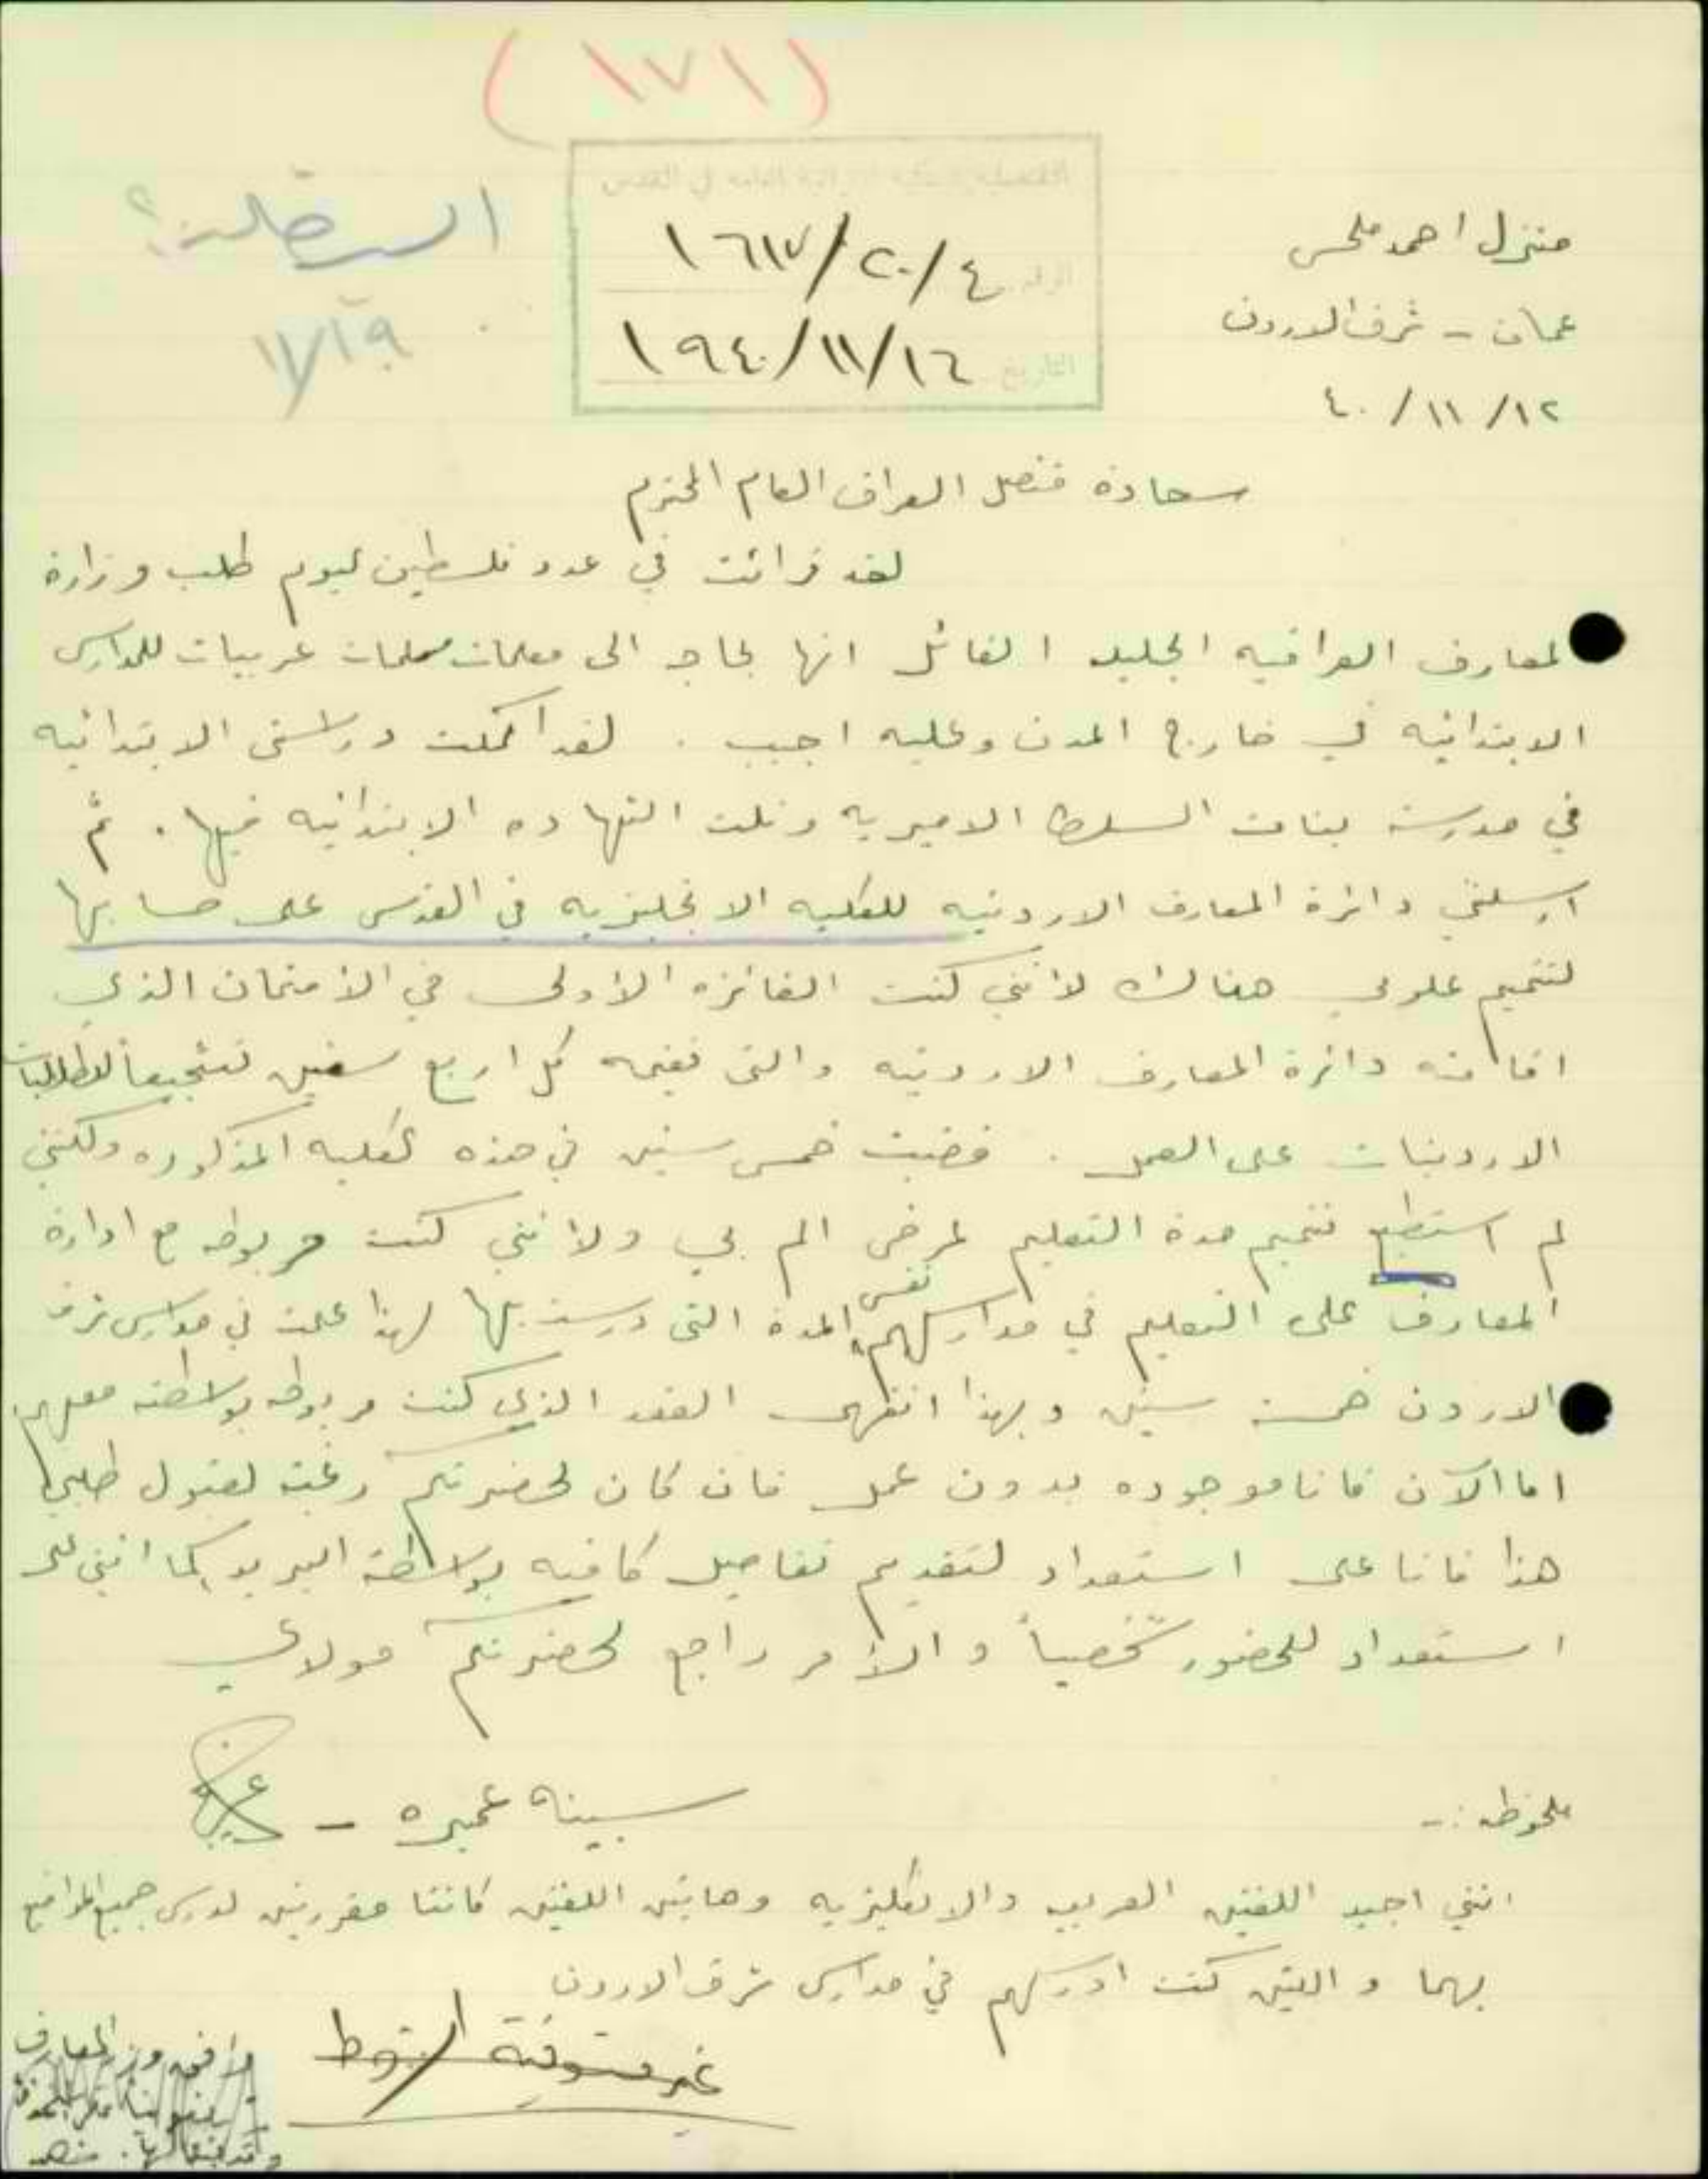 (١٧١)
القنصلية العراقية العامة في القدس
منزل احمد ملحس
الرقم ١٦١٧/٢٠/٤
عمان - شرق الاردن
التاريخ ١٩٤٠/١١/١٦
١١/١٩
٤٠/١١/١٢
سعادة قنصل العراق العام المحترم
لقد قرائت في عدد فلسطين ليوم طلب وزارة
المعارف العراقيه الجليله القائل انها بحاجه الى معلمات عربيات للمدارس
الابتدائيه في خارج المدن وعليه اجيب . لقد اكملت دراستي الابتدائيه
في مدرسة بنات السلط الاميريه ونلت الشهاده الابتدائيه فيها . ثم
ارسلتني دائرة المعارف الاردنيه للكليه الانجليزيه في القدس على حسابها
لتتميم علومي هناك لانني كنت الفائزه الأولى في الأمتحان الذي
اقامته دائرة المعارف الاردنيه والتي تقيمه كل اربع سنين تشجيعاً للطالبات
الاردنيات على العمل . قضيت خمس سنين في هذه الكليه المذكوره ولكنني
لم استطع تتميم مدة التعليم لمرض الم بي ولانني كنت مربوطه مع ادارة
المعارف على التعليم في مدارسهم نفس المدة التي درست بها لهذا علمت في مدارس شرق
الاردن خمسة سنين وبهذا انتهى العقد الذي كنت مربوطه بواسطته معهم
اما الآن فانا موجوده بدون عمل فان كان لحضرتكم رغبة لقبول طلبي
هذا فانا على استعداد لتقديم تفاصيل كافيه بواسطة البريد كما انني على
استعداد للحضور شخصياً والأمر راجع لحضرتكم مولاي
سبينه عميره -
ملحوظه :-
انني اجيد اللغتين العربيه والانكليزيه وهاتين اللغتين كانتا مقررتين لدرس جميع المواضيع
بهما والتين كنت ادرسهم في مدارس شرق الاردن
غير مستوفية الشروط
وافق وزير المعارف